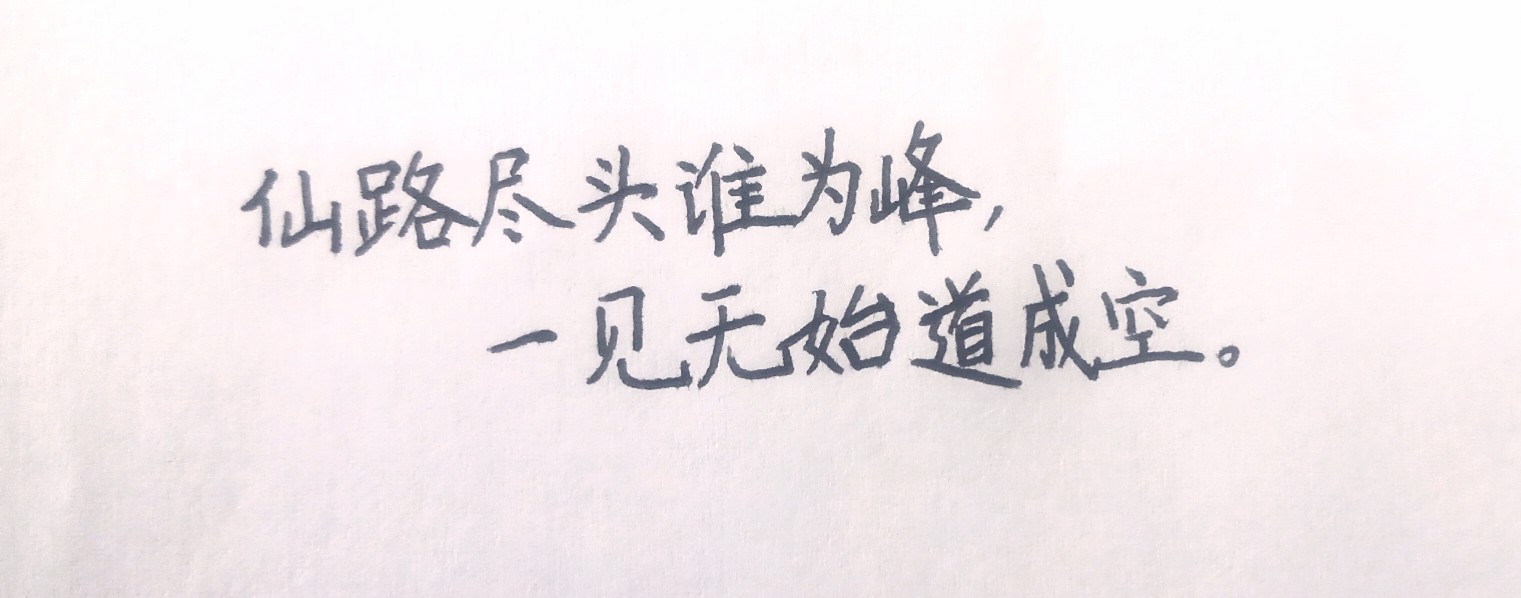 仙路尽头谁为峰,
一见无始道成空。